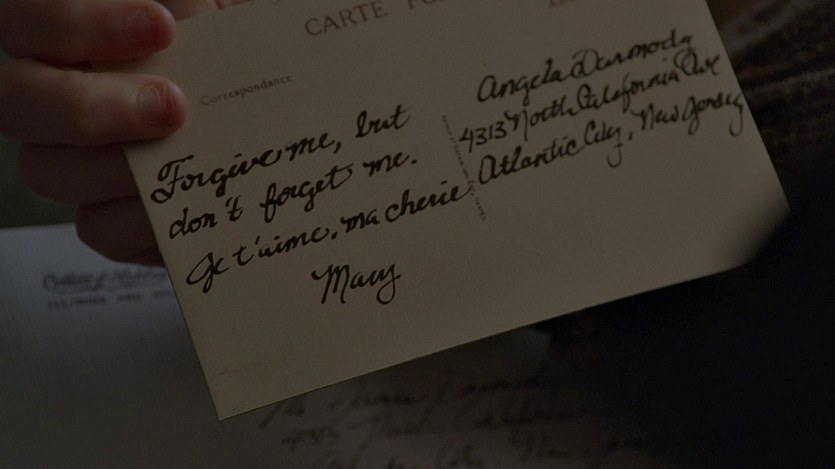 CARTE
Correspondance
Forgive me, but
don't forget me.
Je t'aime, ma cherie
Mary
Angela Darmody
4313 North California Ave
Atlantic City, New Jersey